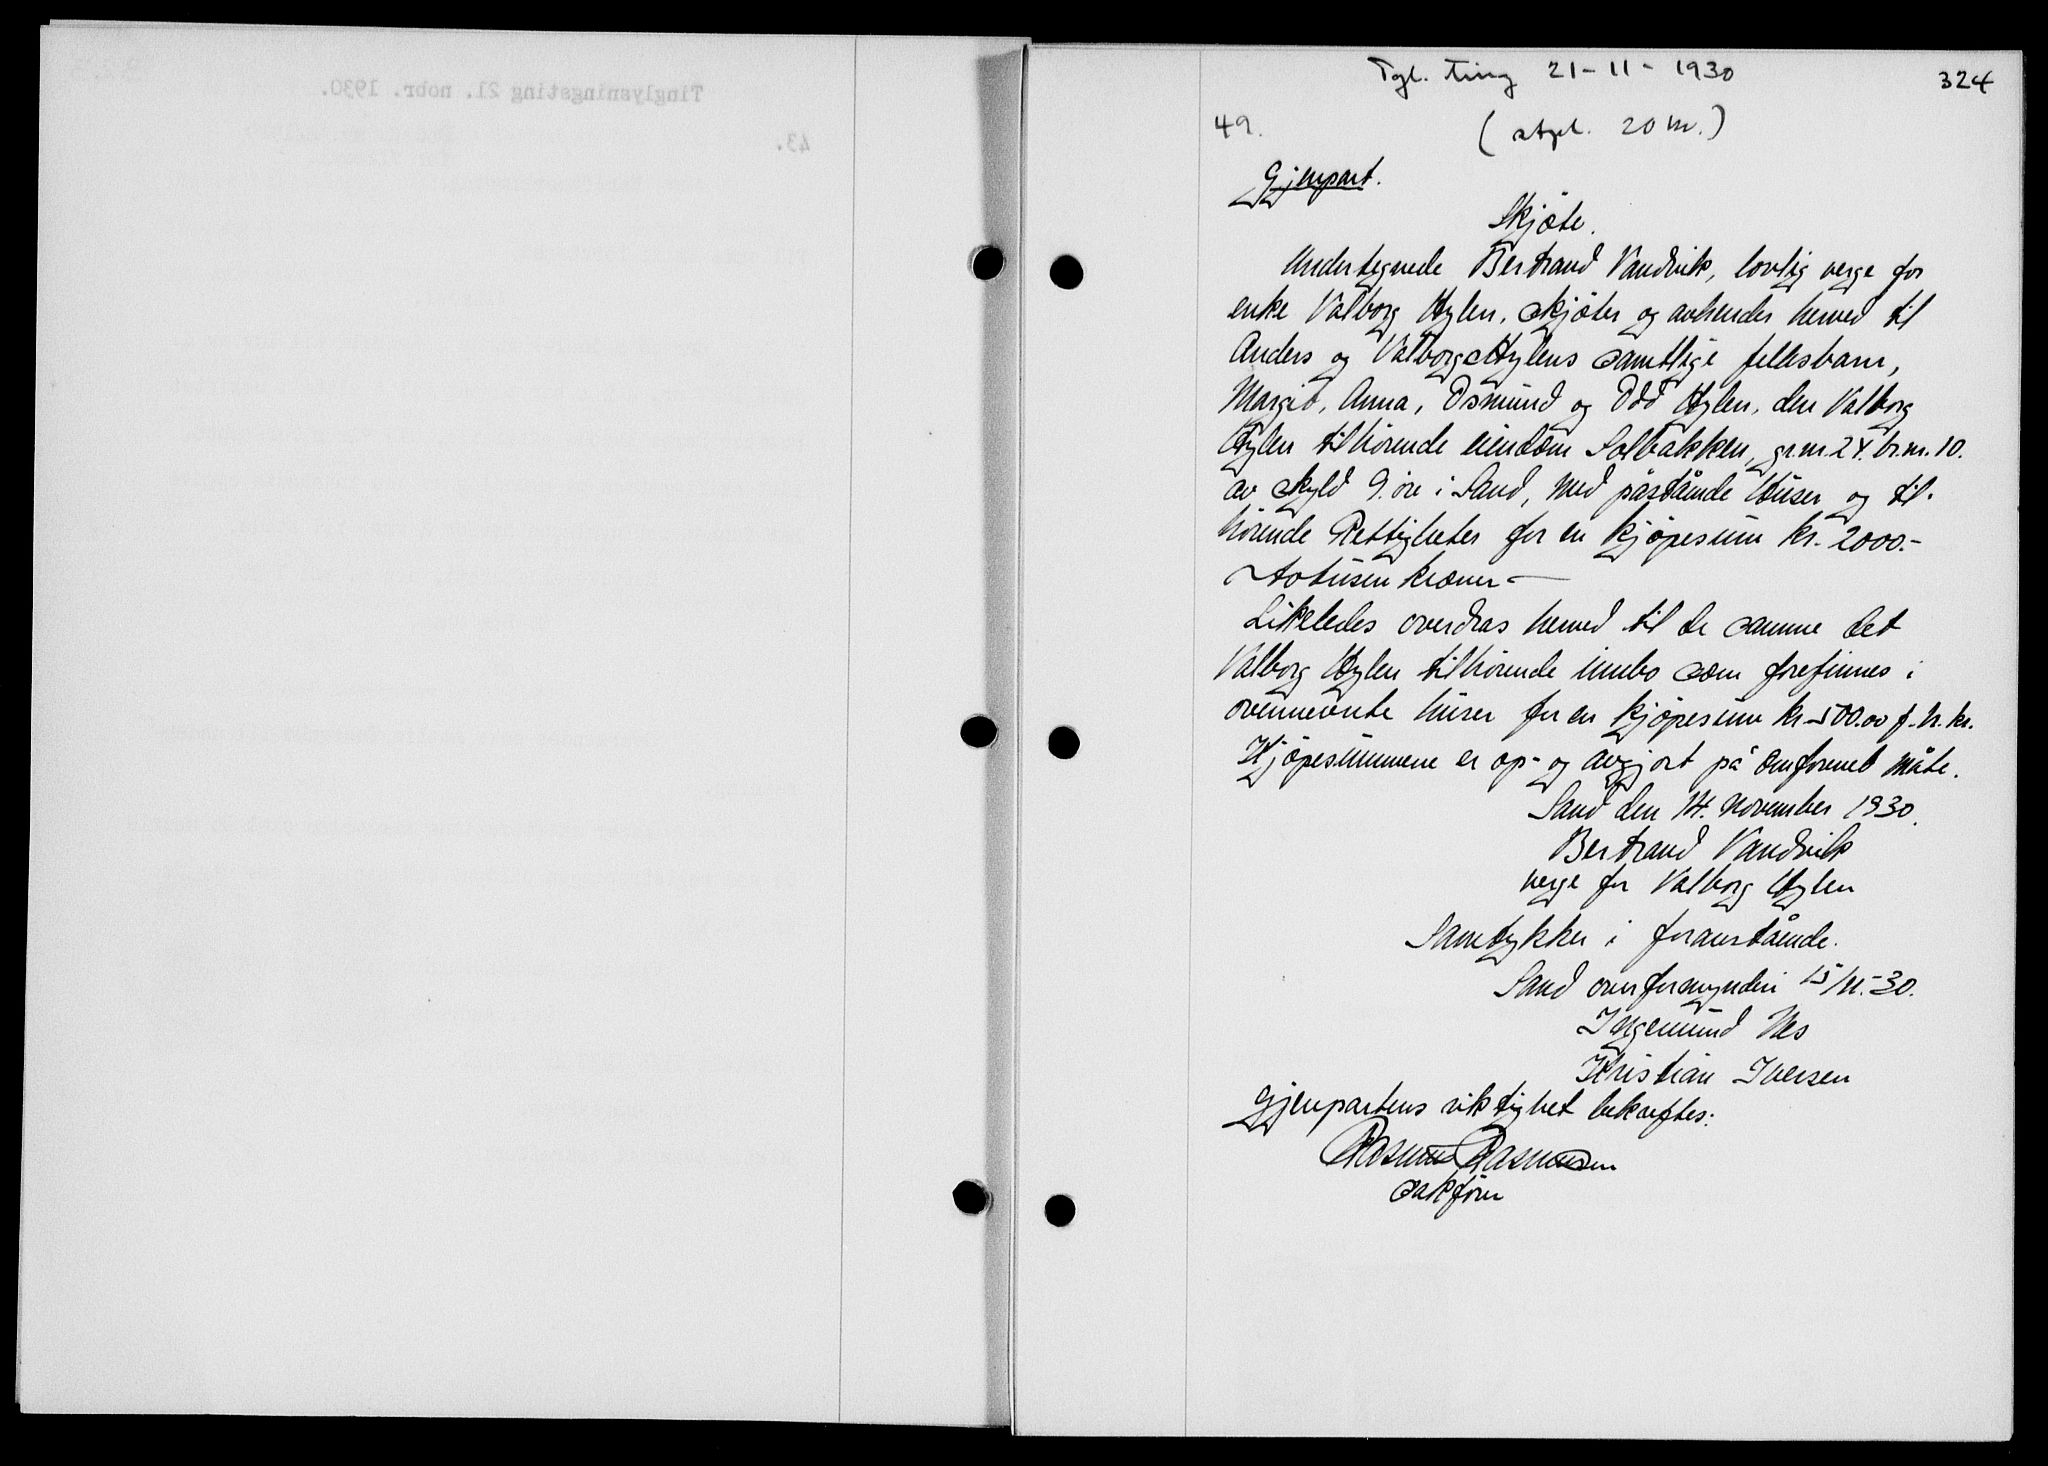 Tinglysningsting 21. nobr. 1930.
43.
Tgl. ting 21-11-1930
324
49.
(stpl. 20 kr.)
Gjenpart.
Skjøte.
Undertegnede Bertrand Vandvik, lovlig verge for
enke Valborg Hylen, skjøter og avhender herved til
Anders og Valborg Hylens samtlige fellesbarn,
Margit, Anna, Osmund og Odd Hylen, den Valborg
Hylen tilhørende eiendom Solbakken, gr.nr. 24. br.nr. 10.
av skyld 9. øre i Sand, med påstående Huser og til-
hørende Rettigheter for en kjøpesum kr. 2000.-
totusen kroner —
Likeledes overdras herved til de samme det
Valborg Hylen tilhørende innbo som forefinnes i
ovennevnte huser for en kjøpesum kr. 500.00 f.h.kr.
Kjøpesummene er op- og avgjort på omforenet måte.
Sand den 14. november 1930.
Bertrand Vandvik
verge for Valborg Hylen
Samtykker i foranstående.
Sand overformynderi 15/11.-30.
Ingemund Nes
Kristian Iversen
Gjenpartens riktighet bekreftes:
Rasmus Rasmussen
sakfører